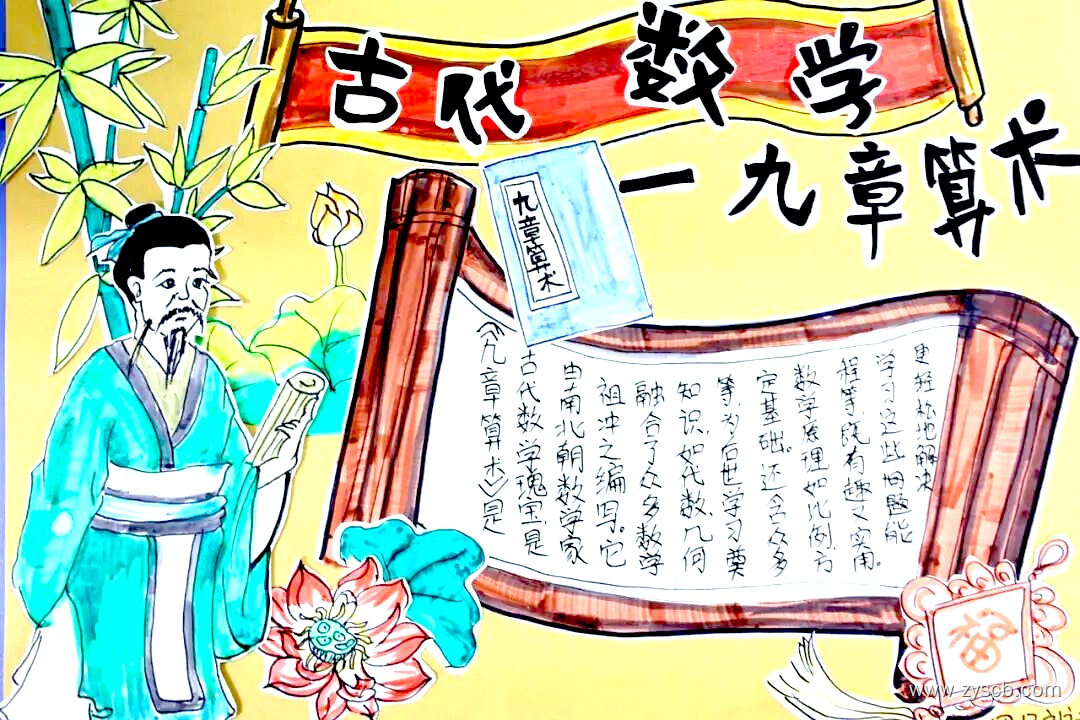 古代数学
一九章算术
九章算术
《九章算术》是
古代数学瑰宝,是
由南北朝数学家
祖冲之编写。它
融合了众多数学
知识,如代数几何
等,为后世学习奠
定基础。还含众多
数学原理如比例,方
程等,既有趣又实用。
学习这些问题能
更轻松地解决
福
www.zyscb.com